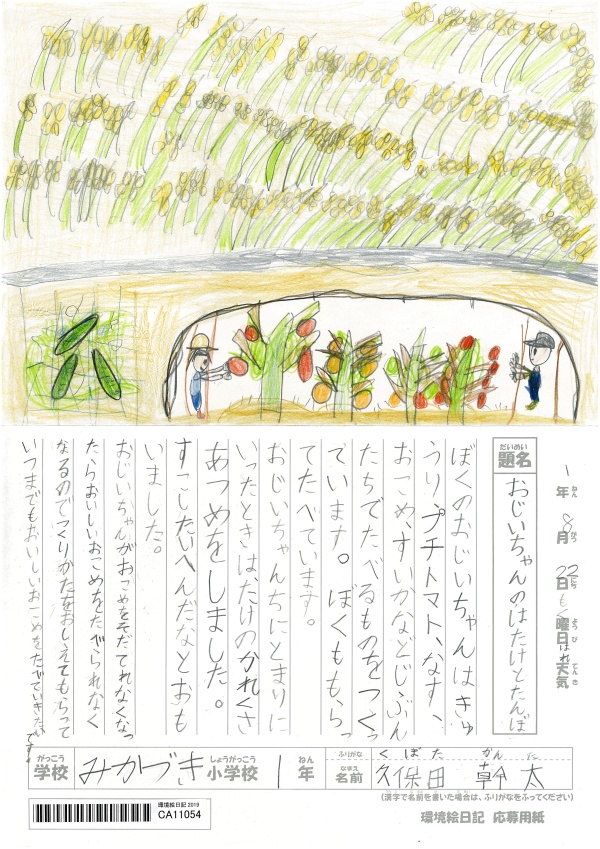 1年 8月 22日 もく曜日 はれ天気
ねん がつ にち ようび てんき
だいめい
題名 おじいちゃんのはたけとたんぼ
ぼくのおじいちゃんはきゅ
うり、プチトマト、なす、
おこめ、すいかなどじぶん
たちでたべるものをつくっ
ています。ぼくももらっ
てたべています。
おじいちゃんちにとまりに
いったときは、たけのかれくさ
あつめをしました。
すこしたいへんだなとおも
いました。
おじいちゃんがおこめをそだてれなくなっ
たらおいしいおこめをたべられなく
なるのでつくりかたをおしえてもらって
いつまでもおいしいおこめをたべていきたい
です。
がっこう しょうがっこう ねん ふりがな くぼた かんた
学校 みかづき 小学校 1年 なまえ 名前 久保田 幹太
(漢字で名前を書いた場合は、ふりがなをふってください)
環境絵日記 応募用紙
環境絵日記 2019
CA11054